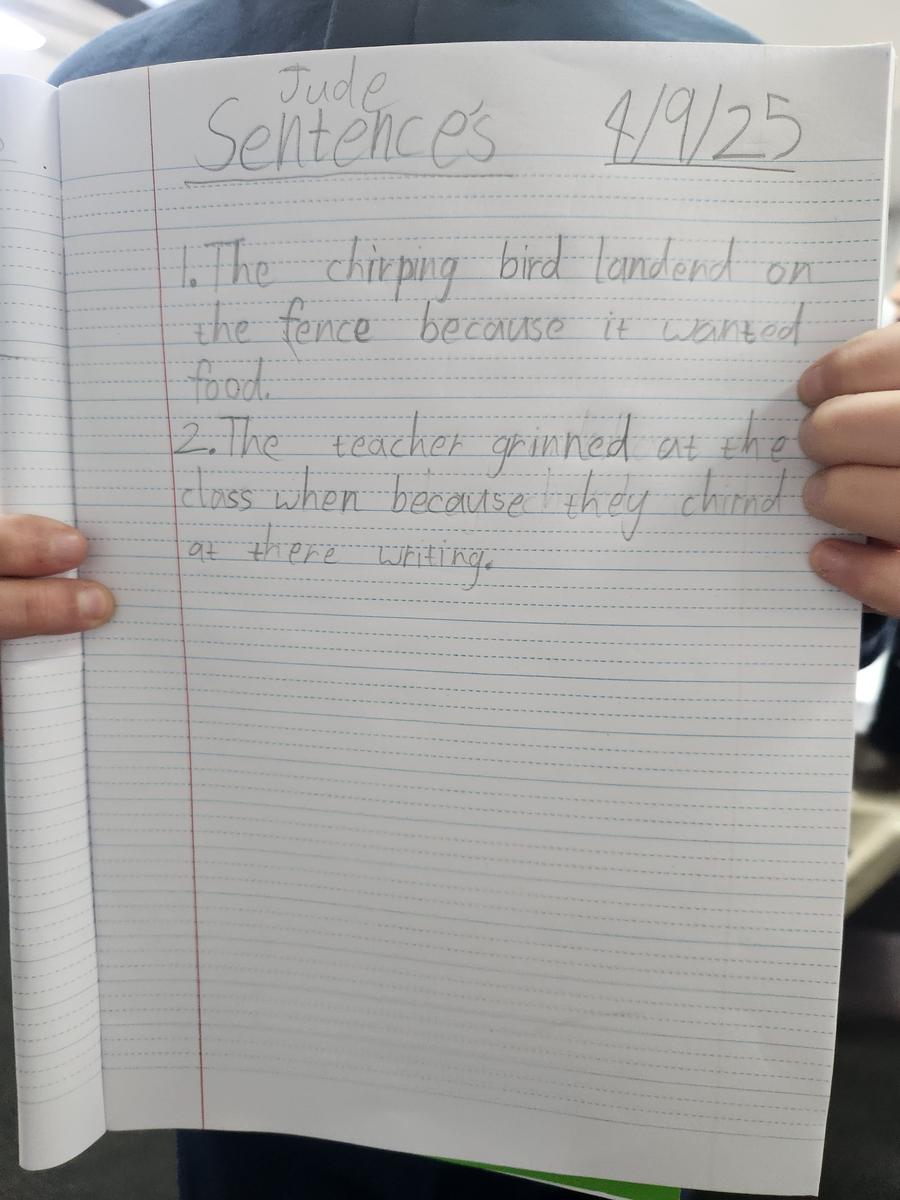 Jude
Sentence's 4/9/25
1. The chirping bird landend on
the fence because it wanted
food.
2. The teacher grinned at the
class when because they
at there writing.